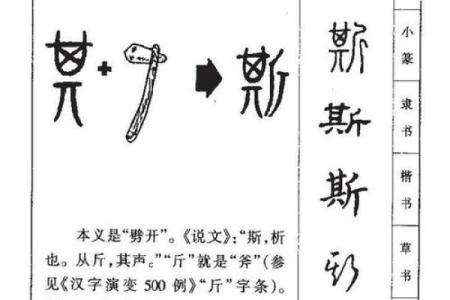 斯
斯
斯
斯
斯
小篆
隶书
楷书
草书
本义是“劈开”。《说文》：“斯，析
也。从斤，其声。”“斤”就是“斧”（参
见《汉字演变 500 例》“斤”字条）。